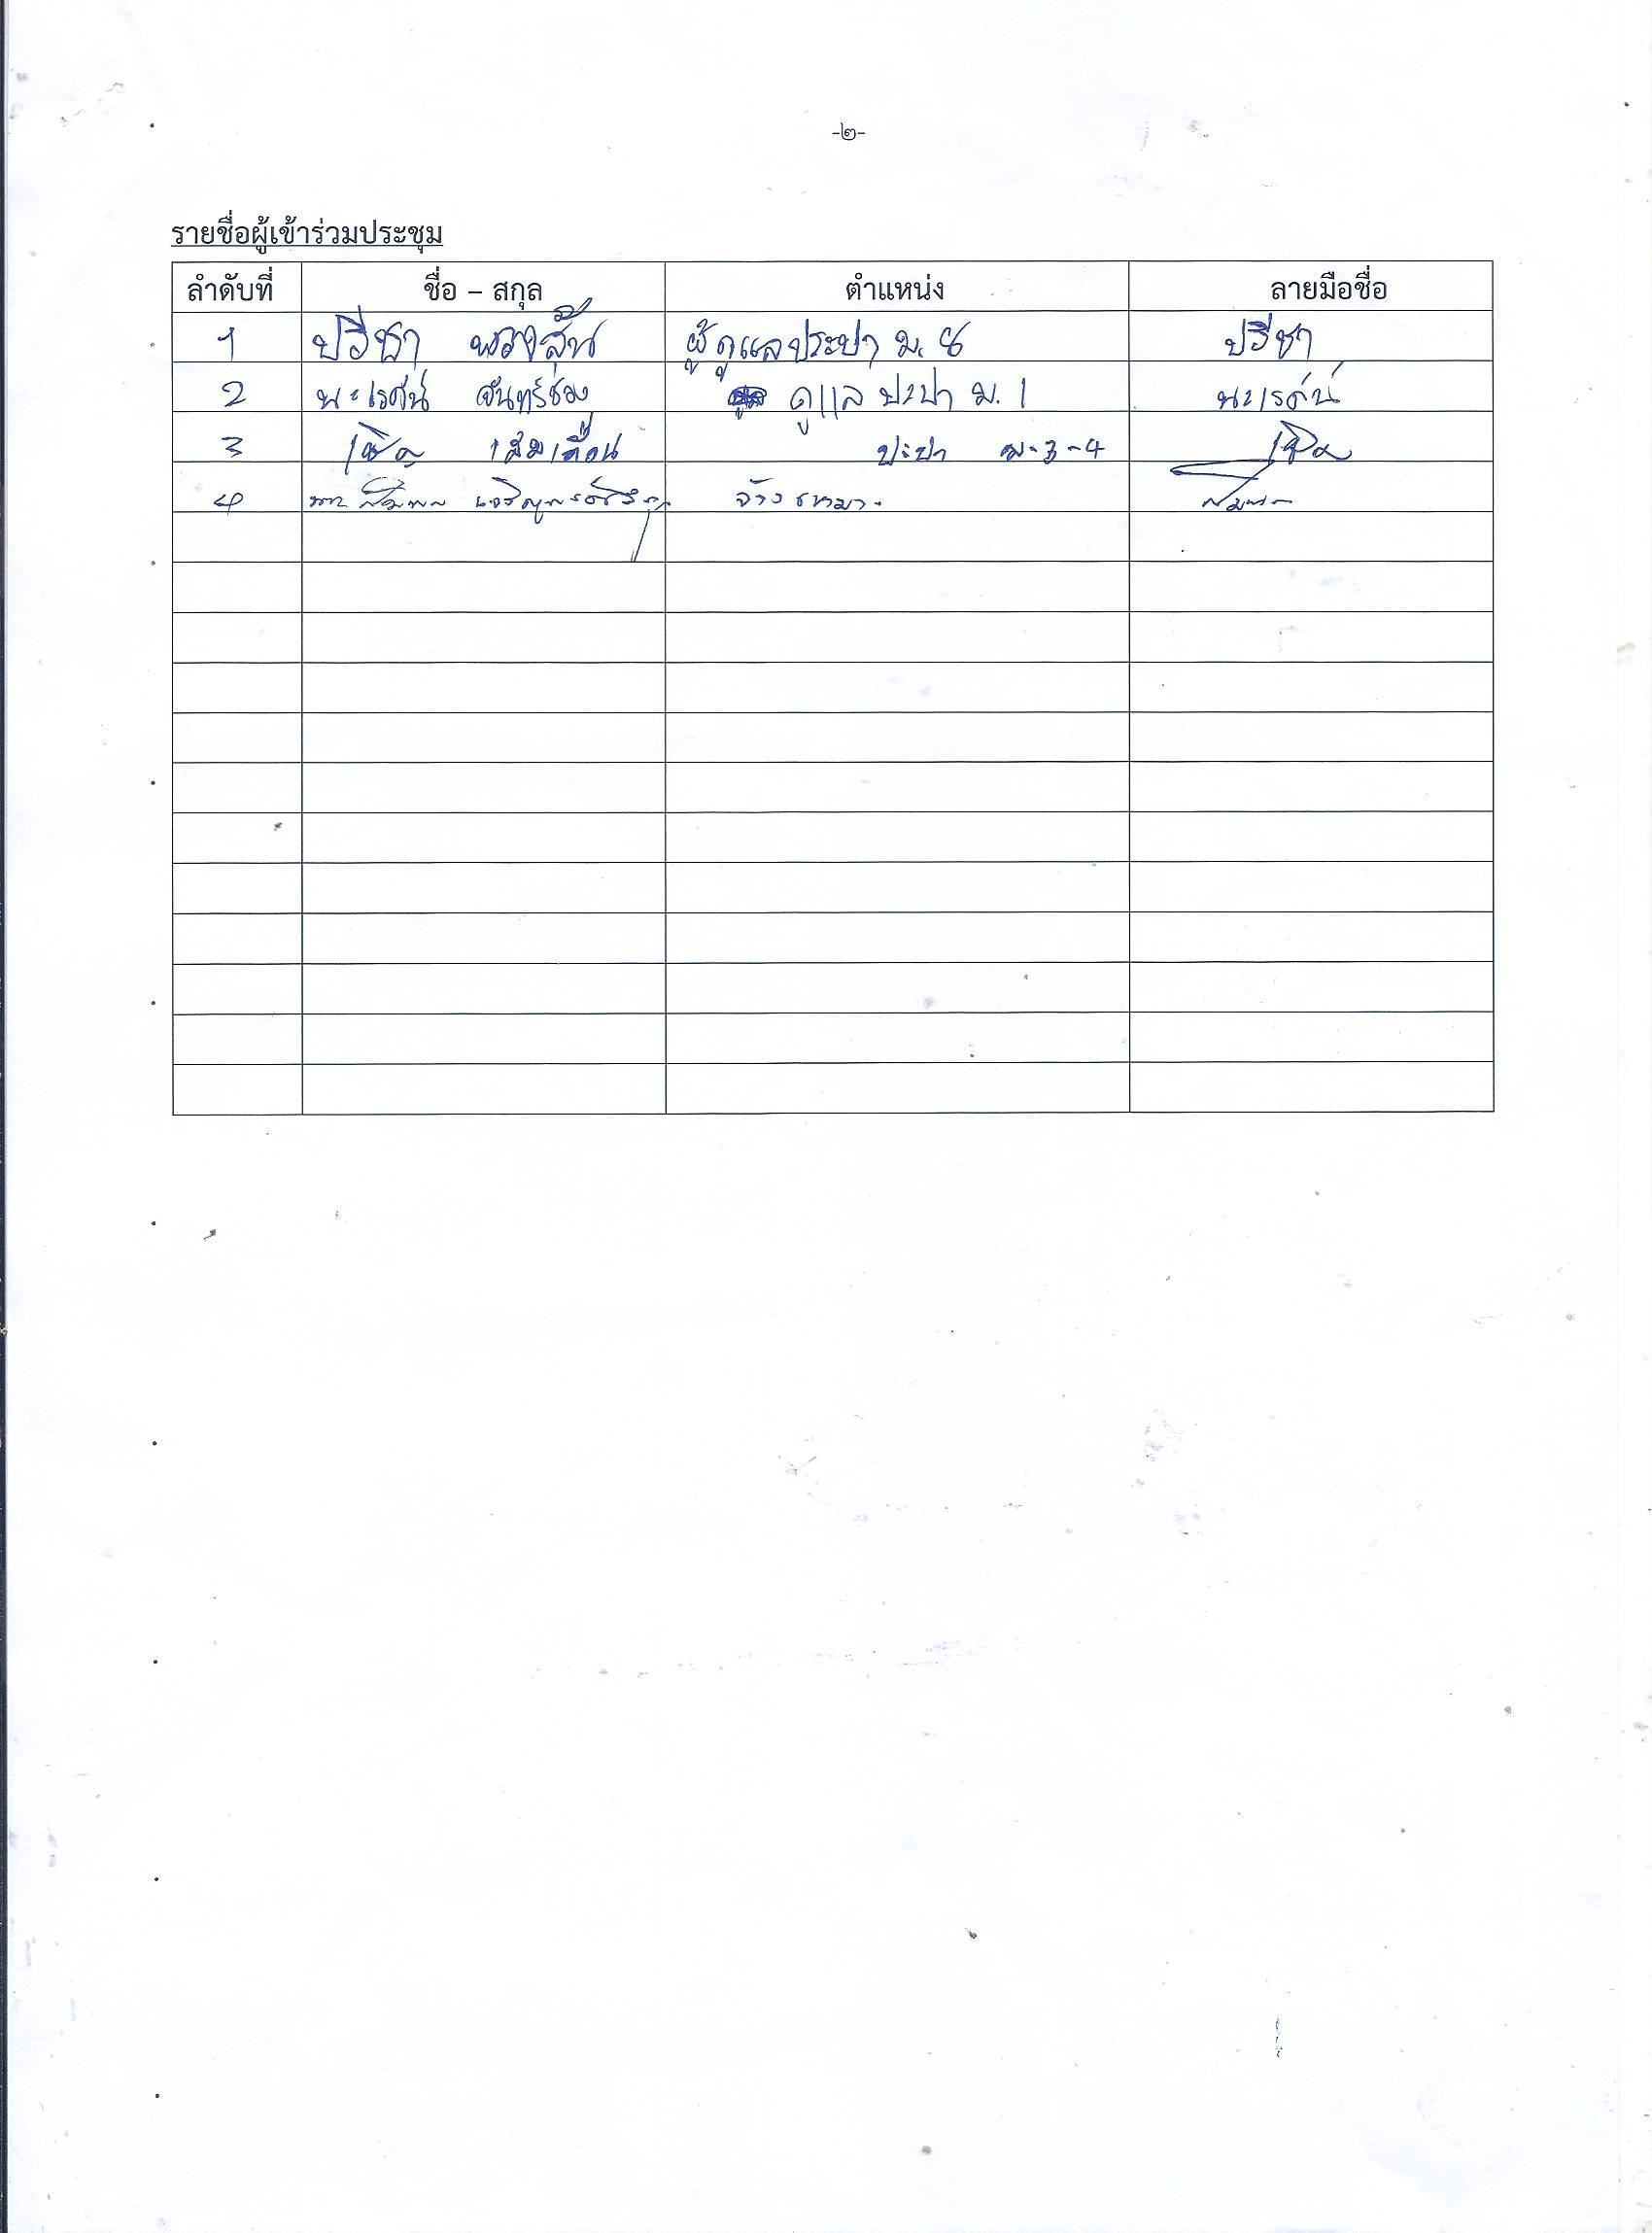 -๒-
รายชื่อผู้เข้าร่วมประชุม
ลำดับที่ ชื่อ – สกุล ตำแหน่ง ลายมือชื่อ
1 ปรีชา ผู้ดูแลประปา ม. 8 ปรีชา
2 นะเรศน์ จันทร์ช่วง ดูแล ปะปา ม. 1 นะเรศน์
3 เชิด ปะปา ม-3-4 เชิด
4 จ้างเหมา